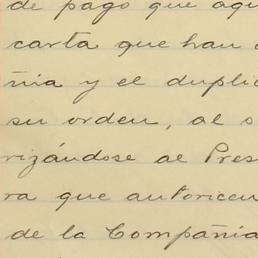 de pago que aqu
carta que han
ñia y el duplic
su orden, al s
rizándose al Pres
ra que autoricen
de la Compañia